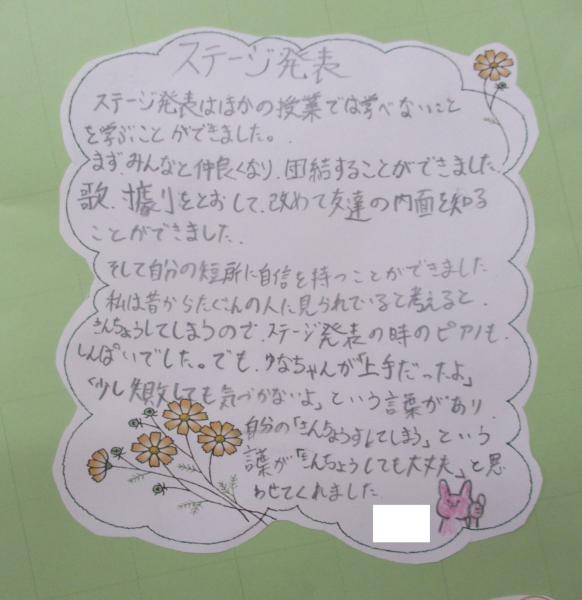 ステージ発表
ステージ発表はほかの授業では学べないこと
を学ぶことができました。
まず、みんなと仲良くなり、団結することができました。
歌、劇をとおして、改めて友達の内面を知る
ことができました。
そして自分の短所に自信を持つことができました
私は昔からたくさんの人に見られていると考えると、
きんちょうしてしまうので、ステージ発表の時のピアノも、
しんぱいでした。でも、ゆなちゃんが「上手だったよ」
「少し失敗しても気づかないよ」という言葉があり、
自分の「きんちょうすしてしまう」という
言葉が「きんちょうしても大丈夫」と思
わせてくれました